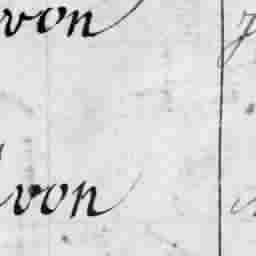 von
von